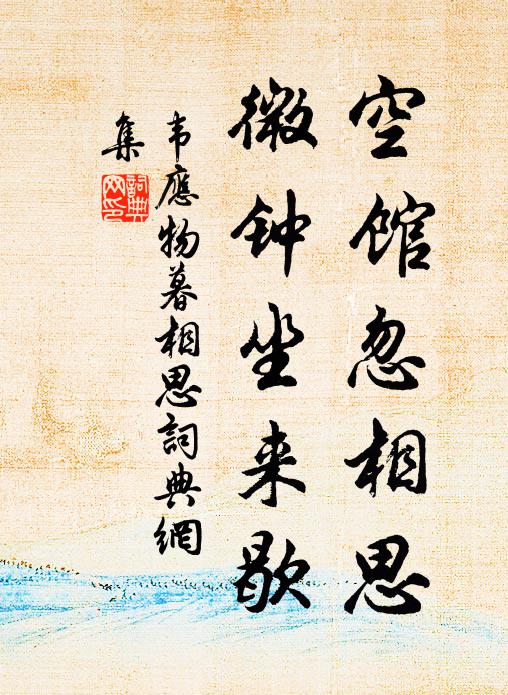 空馆忽相思
微钟坐来歇
韦應物暮相思詞典網
集
詞典
网印